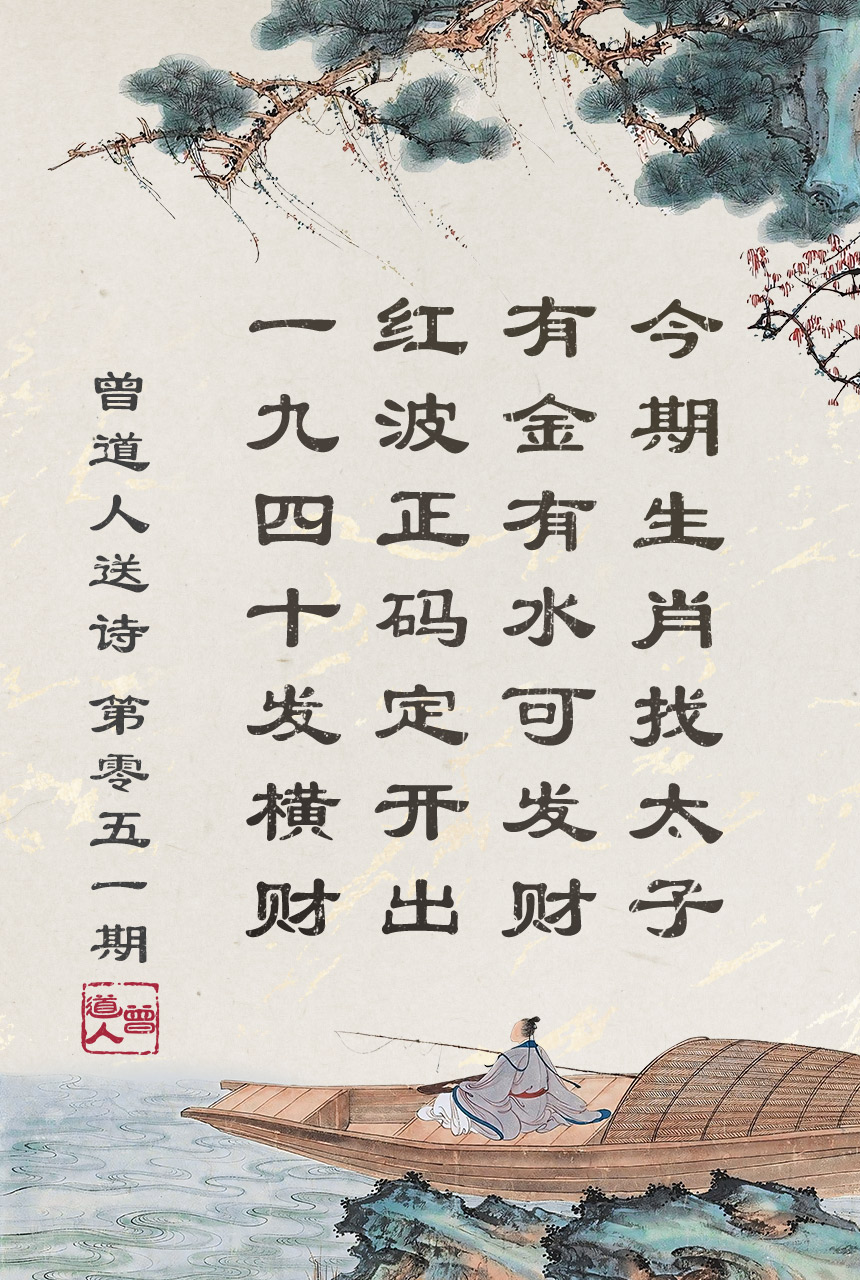 今期生肖找太子
有金有水可发财
红波正码定开出
一九四十发横财
曾道人送诗 第零五一期
曾道人